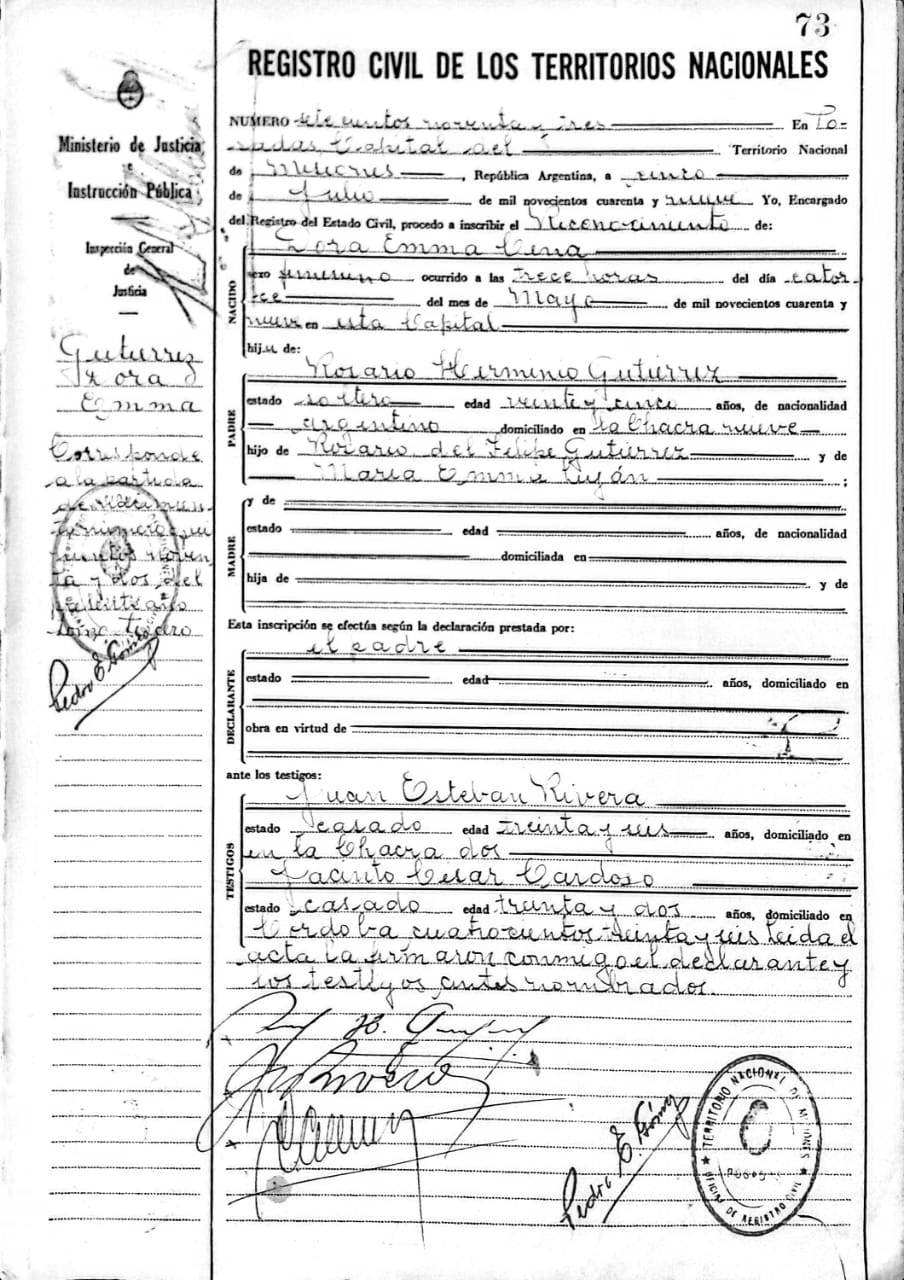 73
REGISTRO CIVIL DE LOS TERRITORIOS NACIONALES
Ministerio de Justicia
e
Instrucción Pública
Inspección General
de
Justicia
Gutierrez
Zora
Emma
Corresponde
a la partida
de nacimien
to número qui
nientos noven
ta y dos del
presente año
Pedro E. Gómez
NUMERO setecientos noventa y tres En Po-
sadas, Capital del Territorio Nacional
de Misiones, República Argentina, a cinco
de Julio de mil novecientos cuarenta y nueve Yo, Encargado
del Registro del Estado Civil, procedo a inscribir el Reconocimiento de:
NACIDO
Zora Emma Cena
sexo femenino ocurrido a las trece horas del día cator-
ce del mes de Mayo de mil novecientos cuarenta y
nueve en esta Capital
hij a de:
PADRE
Rosario Herminio Gutierrez
estado soltero edad veinte y cinco años, de nacionalidad
argentino domiciliado en la Chacra nueve
hijo de Rosario del Felipe Gutierrez y de
Maria Emma Luján ;
MADRE
y de
estado edad años, de nacionalidad
domiciliada en
hija de y de
Esta inscripción se efectúa según la declaración prestada por:
DECLARANTE
el padre
estado edad años, domiciliado en
obra en virtud de
ante los testigos:
TESTIGOS
Juan Esteban Rivera
estado casado edad treinta y seis años, domiciliado en
en la Chacra dos
Jacinto Cesar Cardoso
estado casado edad treinta y dos años, domiciliado en
Cordoba cuatrocientos veinta y seis leida el
acta la firmaron conmigo el declarante y
los testigos antes nombrados.
Pedro E. Gómez
TERRITORIO NACIONAL DE MISIONES
POSADAS
OFICINA DE REGISTRO CIVIL